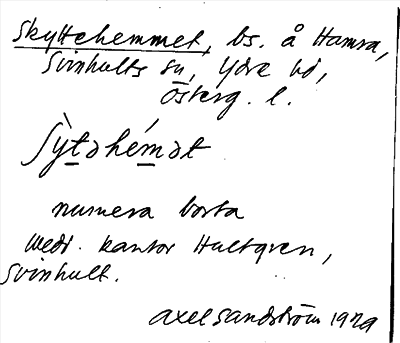 Skyttehemmet, bs. å Hamra,
Svinhults sn, Ydre hd,
Österg. l.
ʃy̆̀təhémət
numera borta
medd. kantor Hultgren,
Svinhult.
Axel Sandström 1929